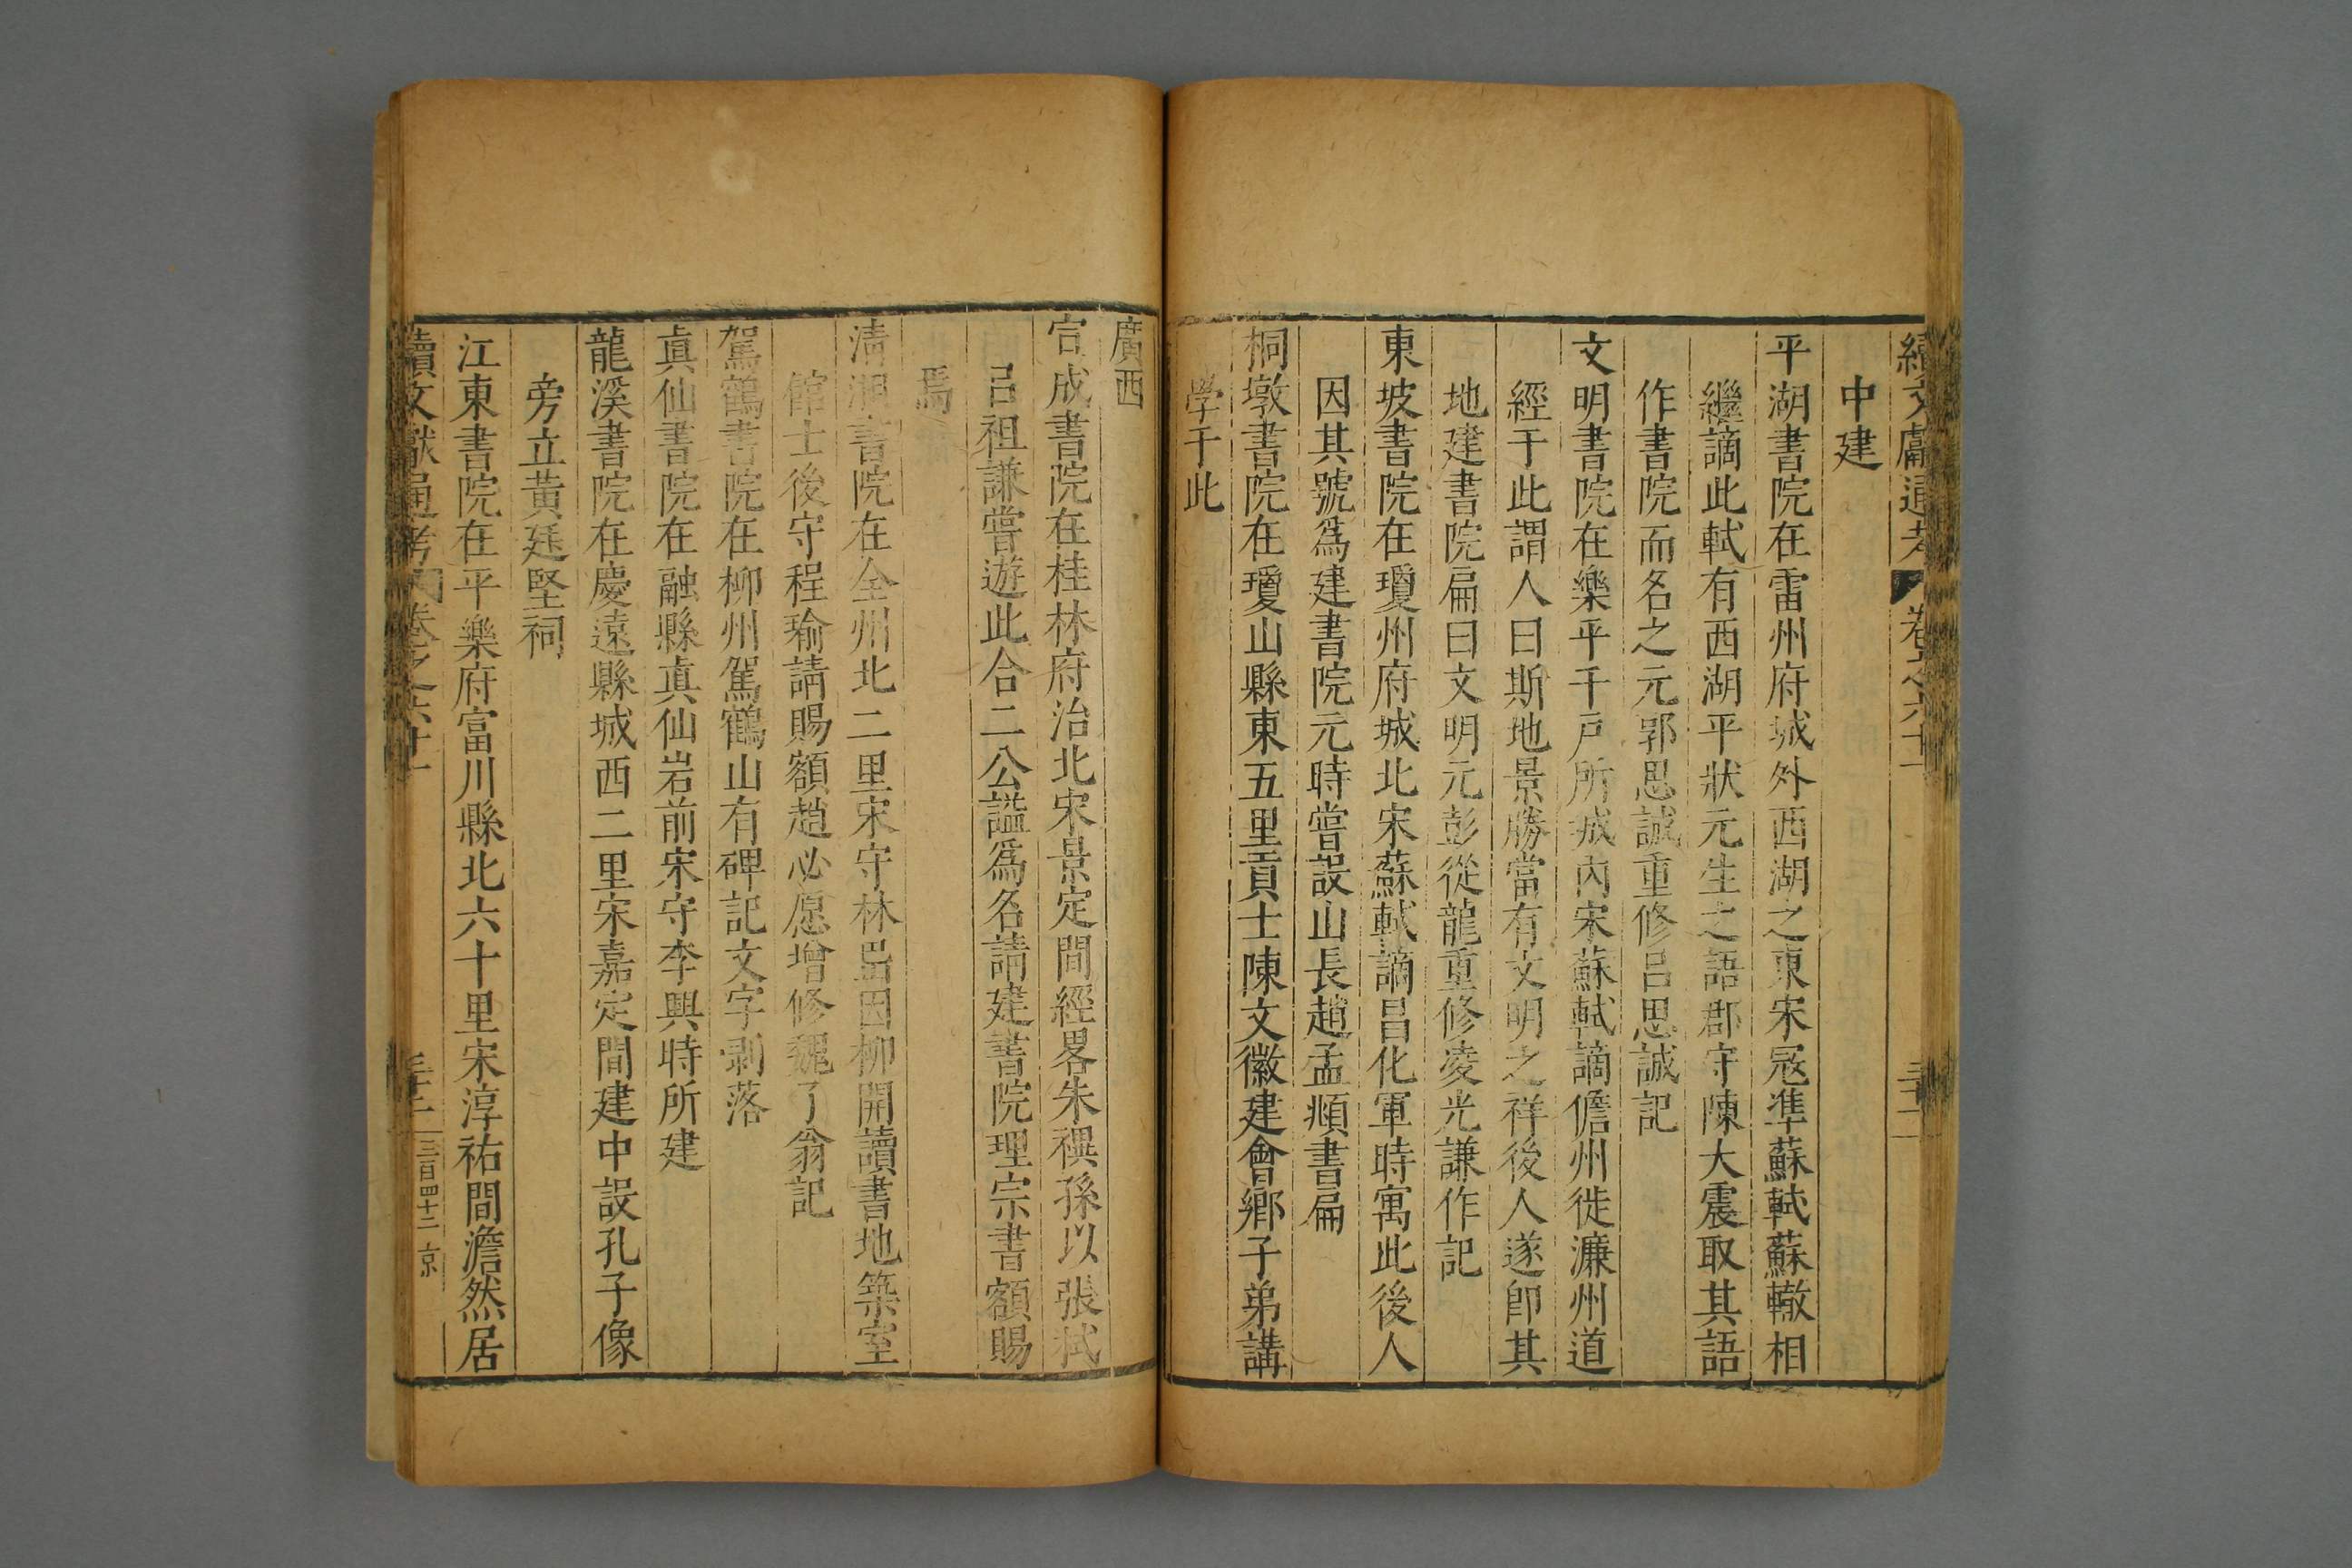 續文獻通考 卷之六十一 三十二
中建
平湖書院在雷州府城外西湖之東宋冦準蘇軾蘇轍相
繼謫此軾有西湖平狀元生之語郡守陳大震取其語
作書院而名之元郭思誠重修呂思誠記
文明書院在樂平千戸所城內宋蘇軾謫儋州徙濂州道
經于此謂人曰斯地景勝當有文明之祥後人遂卽其
地建書院扁曰文明元彭從龍重修凌光謙作記
東坡書院在瓊州府城北宋蘇軾謫昌化軍時寓此後人
因其號爲建書院元時嘗設山長趙孟頫書扁
桐墩書院在瓊山縣東五里貢士陳文徽建會鄉子弟講
學于此
廣西
宣成書院在桂林府治北宋景定間經畧朱禩孫以張栻
呂祖謙嘗遊此合二公謚爲名請建書院理宗書額賜
焉
淸湘書院在全州北二里宋守林岊因柳開讀書地築室
館士後守程瑜請賜額趙必愿增修魏了翁記
駕鶴書院在柳州駕鶴山有碑記文字剥落
眞仙書院在融縣眞仙岩前宋守李興時所建
龍溪書院在慶遠縣城西二里宋嘉定間建中設孔子像
旁立黃廷堅祠
江東書院在平樂府富川縣北六十里宋淳祐間澹然居
續文獻通考 卷之六十一 三十二 三百四十二 京